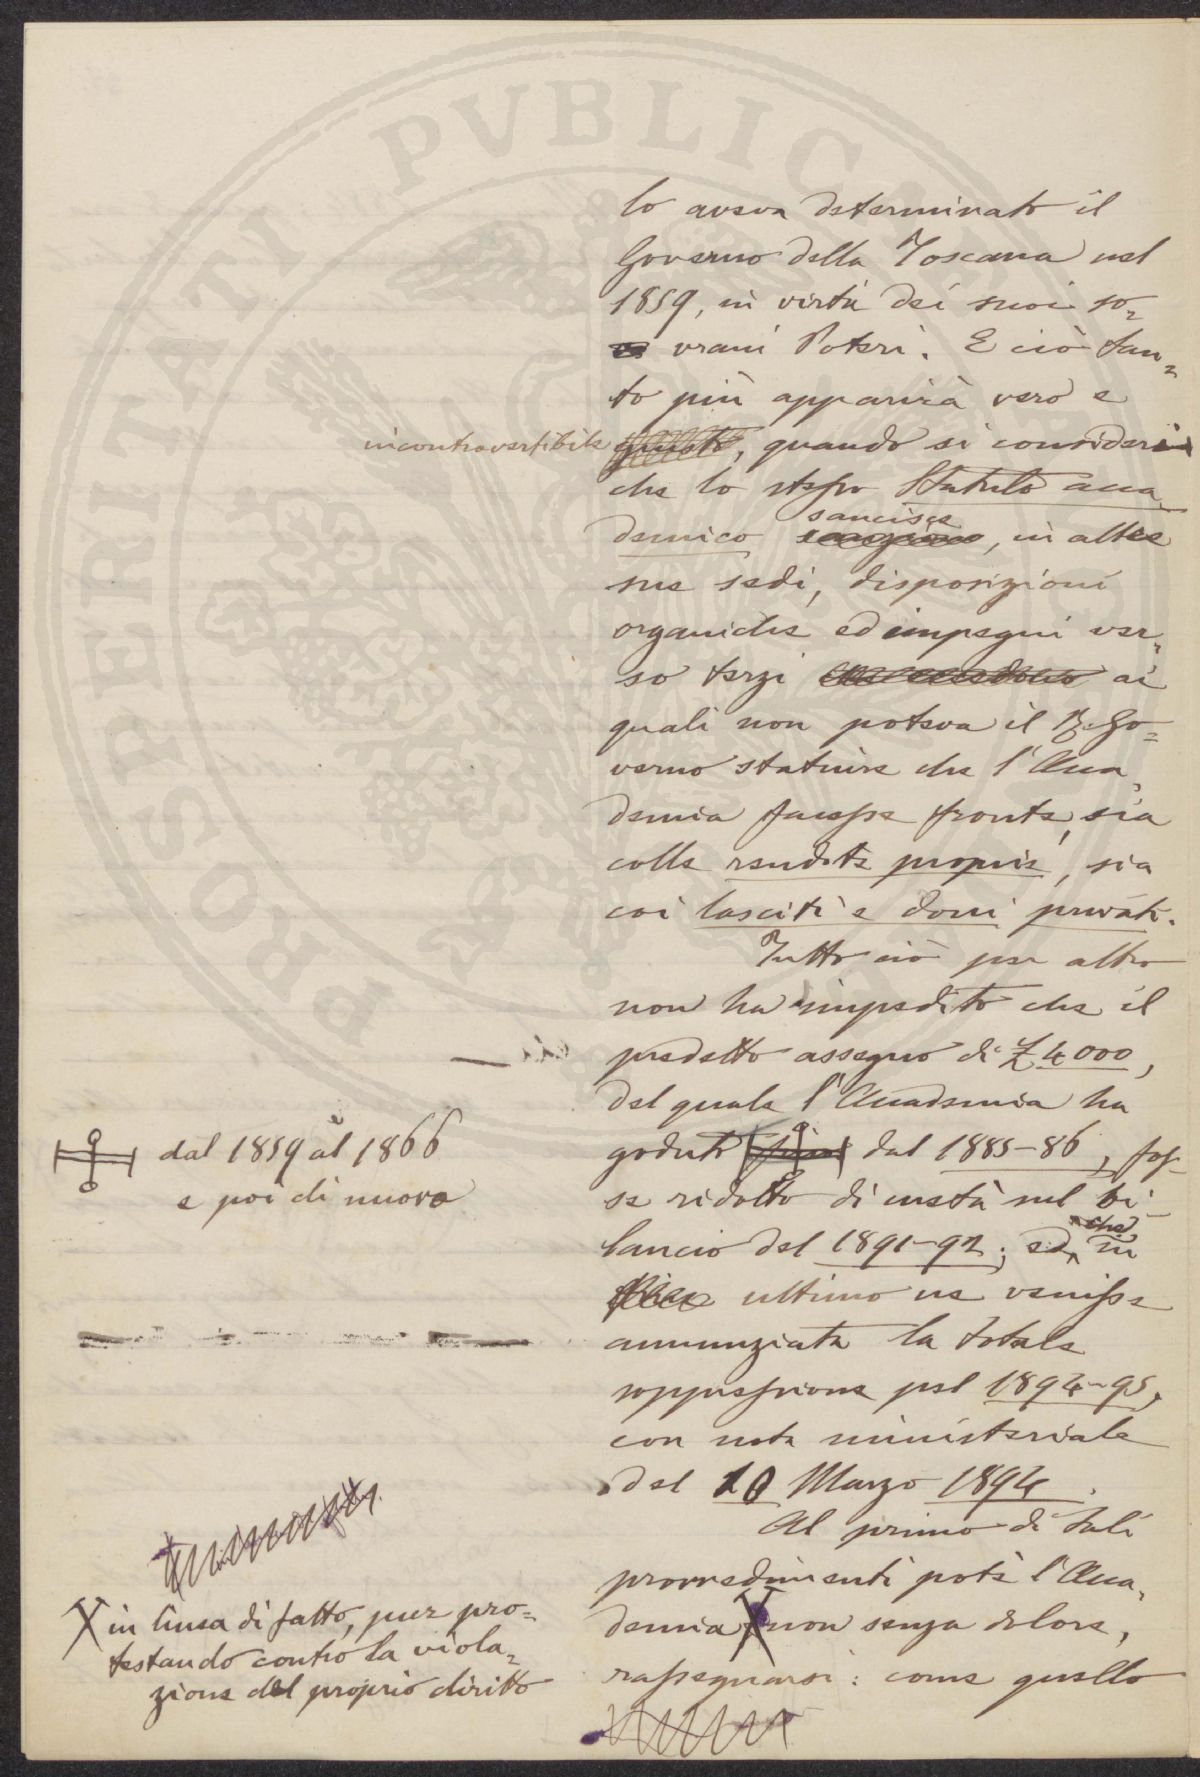 lo aveva determinato il
Governo della Toscana nel
1859, in virtù dei suoi so=
vrani Poteri. E ciò tan=
to più apparirà vero e
incontrovertibile giusto, quando si consideri
che lo stesso Statuto acca=
sancisce
demico, in altre
sue sedi, disposizioni
organiche ed impegni ver=
so terzi ai
quali non poteva il R. Go=
verno statuire che l'Acca=
demia facesse fronte, sia
colle rendite proprie, sia
coi lasciti e doni privati.
Tutto ciò per altro
non ha impedito che il
predetto assegno di £ 4000,
del quale l'Accademia ha
goduto dal 1885-86, fos=
dal 1859 al 1866
e poi di nuovo
se ridotto di metà nel bi=
lancio del 1891-92; ed in
che
ultimo ne venisse
annunziata la totale
soppressione pel 1894-95,
con nota ministeriale
del 10 Marzo 1894.
Al primo di tali
provvedimenti potè l'Acca=
demia X non senza dolore,
rassegnarsi: come quello
X in linea di fatto, pur pro=
testando contro la viola=
zione del proprio diritto
PROSPERITATI PVBLICAE